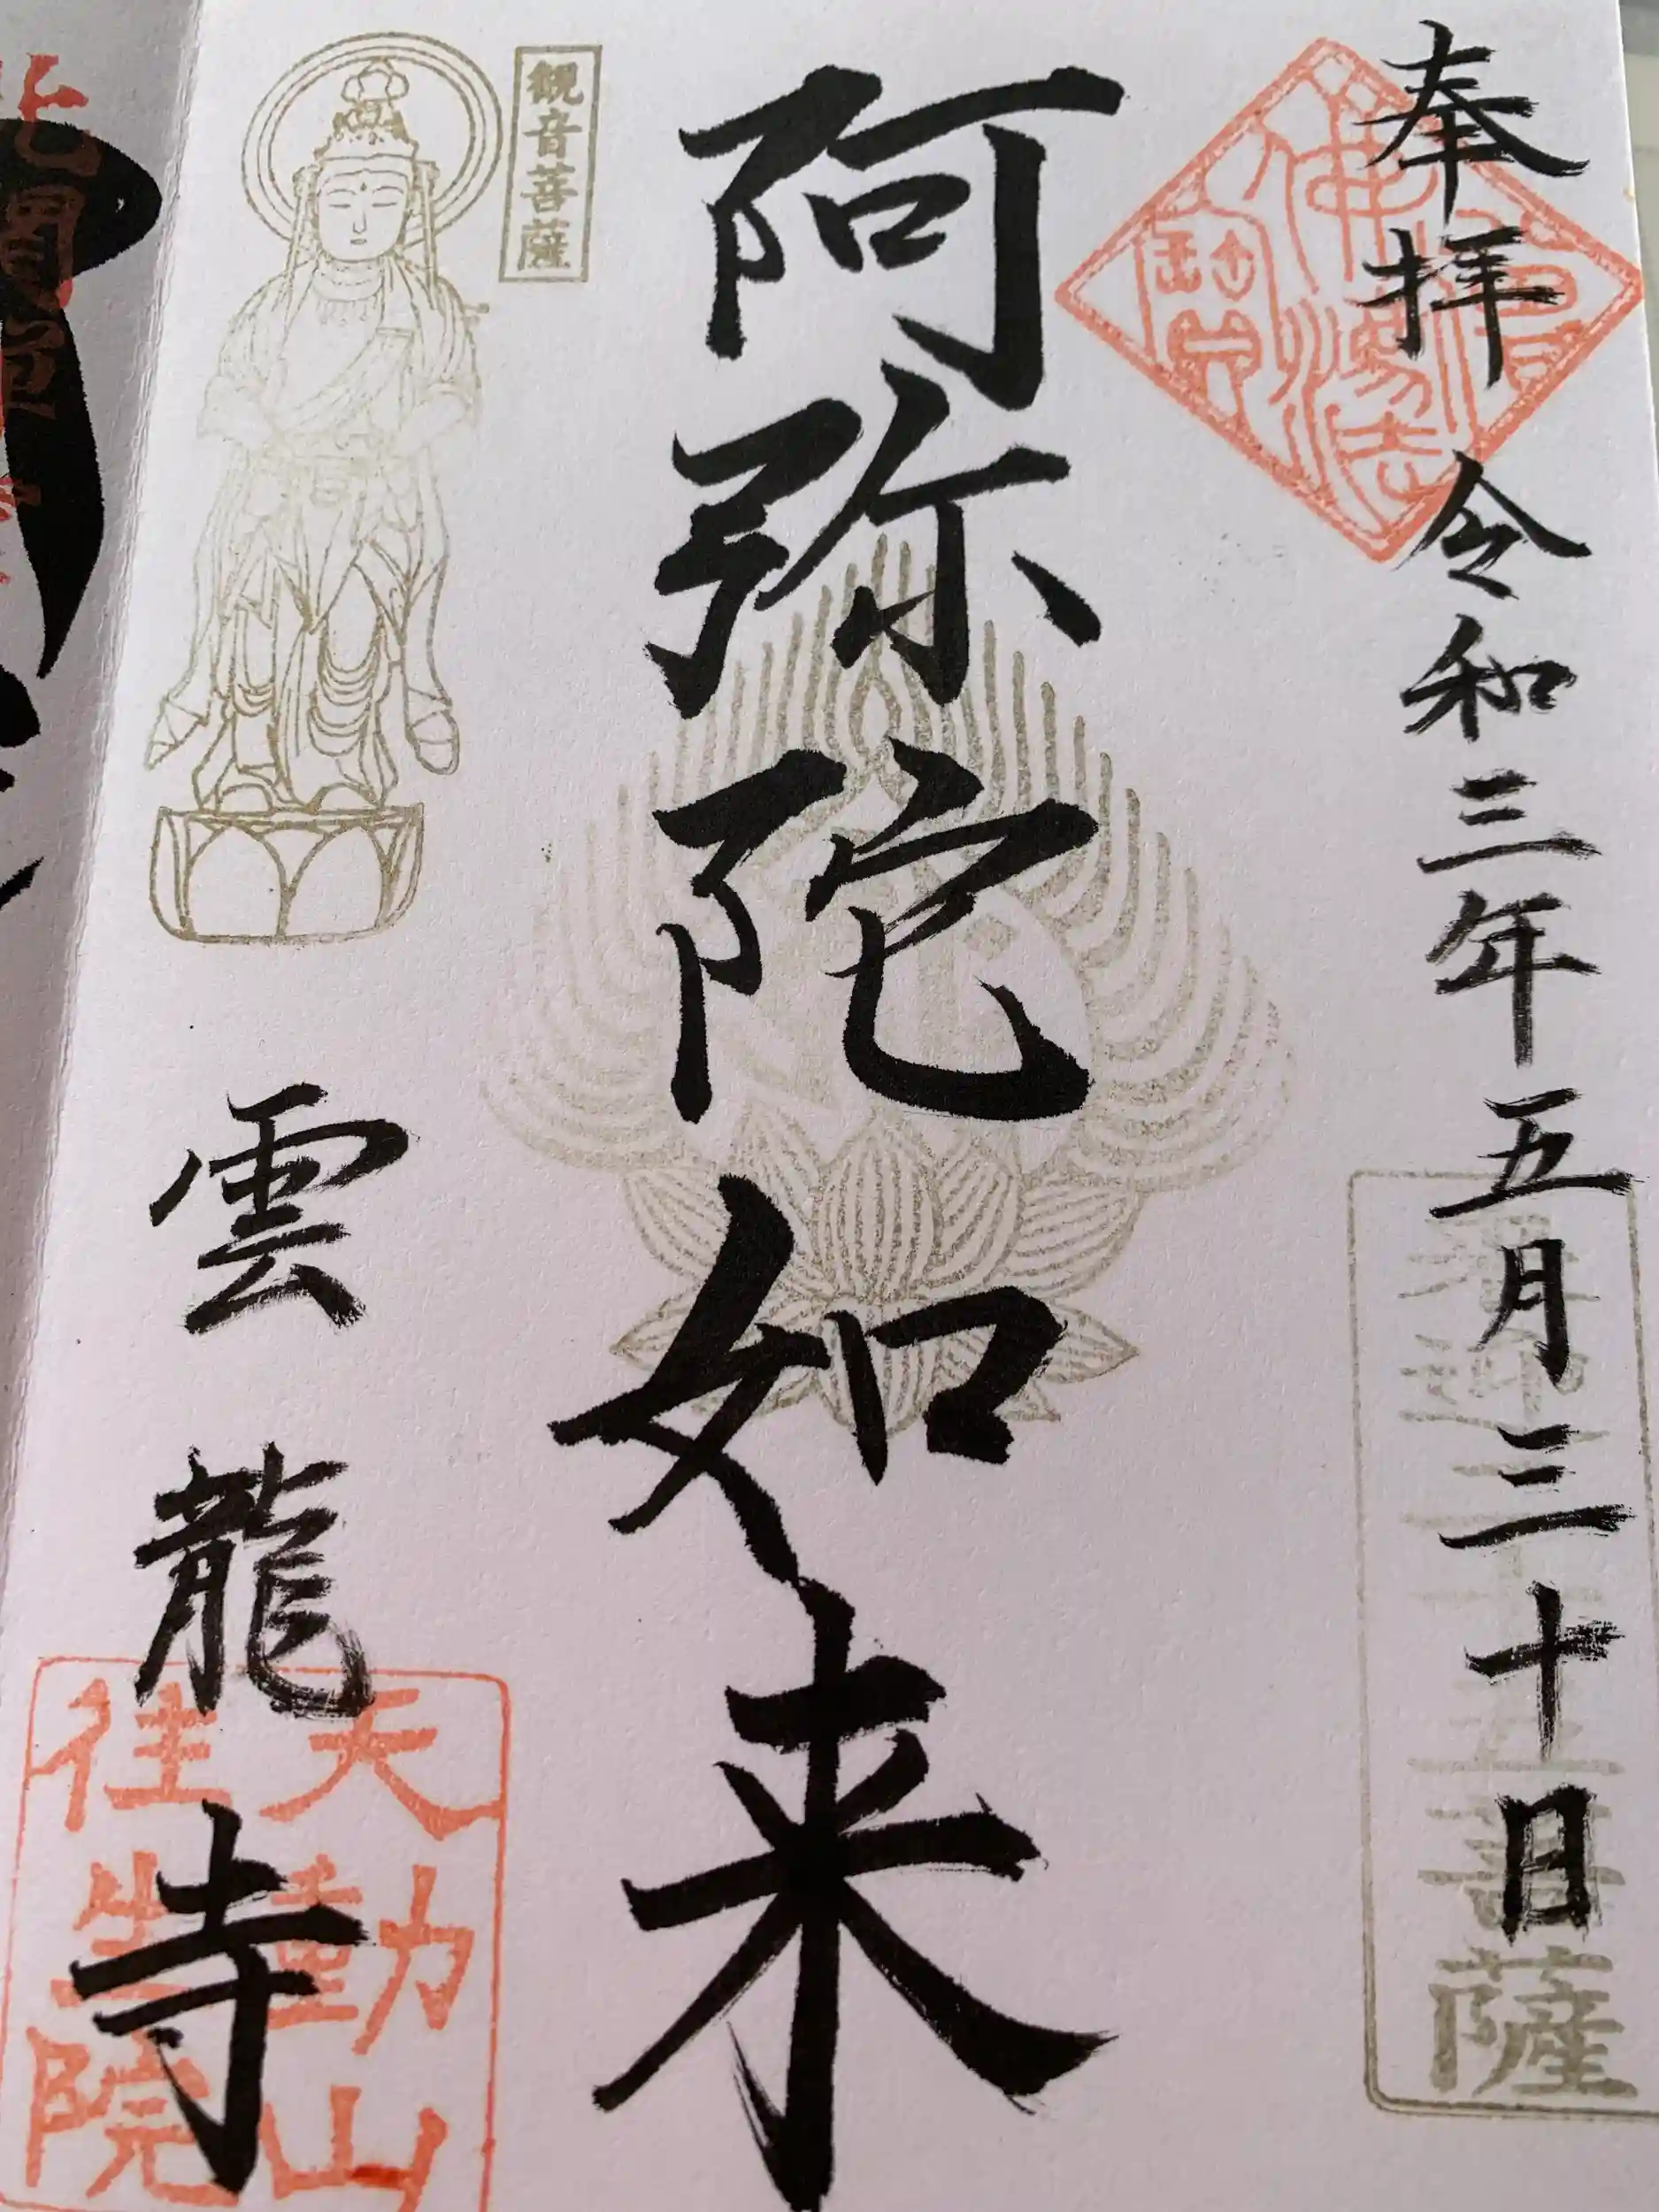 奉拝 令和三年五月三十日
来迎二十五菩薩
阿弥陀如来
観音菩薩
雲龍寺
天動山
往生院